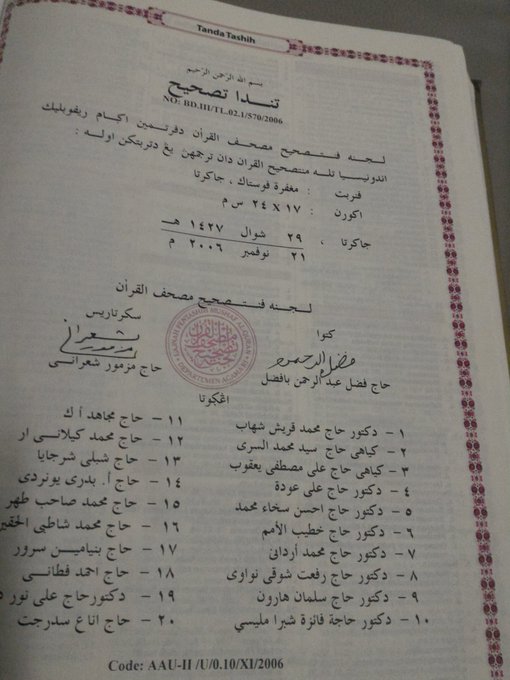 Tanda Tashih
بسم الله الرحمن الرحيم
تندا تصحيح
NO: BD.III/TL.02.1/570/2006
لجنه فنتصحيح مصحف القرأن دفرتمين اكام ريفوبليك
اندونيسيا تله منتصحيح القران دان ترجمهن يڠ دتربتكن اوله :
فنربت : مغفرة فوستاك ، جاكرتا
اكورن : ١٧ X ٢٤ س م
جاكرتا ، ٢٩ شوال ١٤٢٧ هـ
٢١ نوفمبر ٢٠٠٦ م
لجنه فنتصحيح مصحف القرأن
كتوا
سكرتاريس
حاج فضل عبد الرحمن بافضل
حاج مزمور شعرانى
اڠكوتا
١ - دكتور حاج محمد قريش شهاب
٢ - كياهى حاج سيد محمد السرى
٣ - كياهى حاج على مصطفى يعقوب
٤ - دكتور حاج على عودة
٥ - دكتور حاج احسن سخاء محمد
٦ - دكتور حاج خطيب الأمم
٧ - دكتور حاج محمد أردانى
٨ - دكتور حاج رفعت شوقى نواوى
٩ - دكتور حاج سلمان هارون
١٠ - دكتور حاجة فائزة شبرا مليسي
١١ - حاج مجاهد أ ك
١٢ - حاج محمد كيلانى ار
١٣ - حاج شبلى شرجايا
١٤ - حاج أ. بدرى يونردى
١٥ - حاج محمد صاحب طهر
١٦ - حاج محمد شاطبي الحقير
١٧ - حاج بنيامين سرور
١٨ - حاج احمد فطانى
١٩ - دكتور حاج على نور
٢٠ - حاج اناغ سدرجت
Code: AAU-II /U/0.10/XI/2006